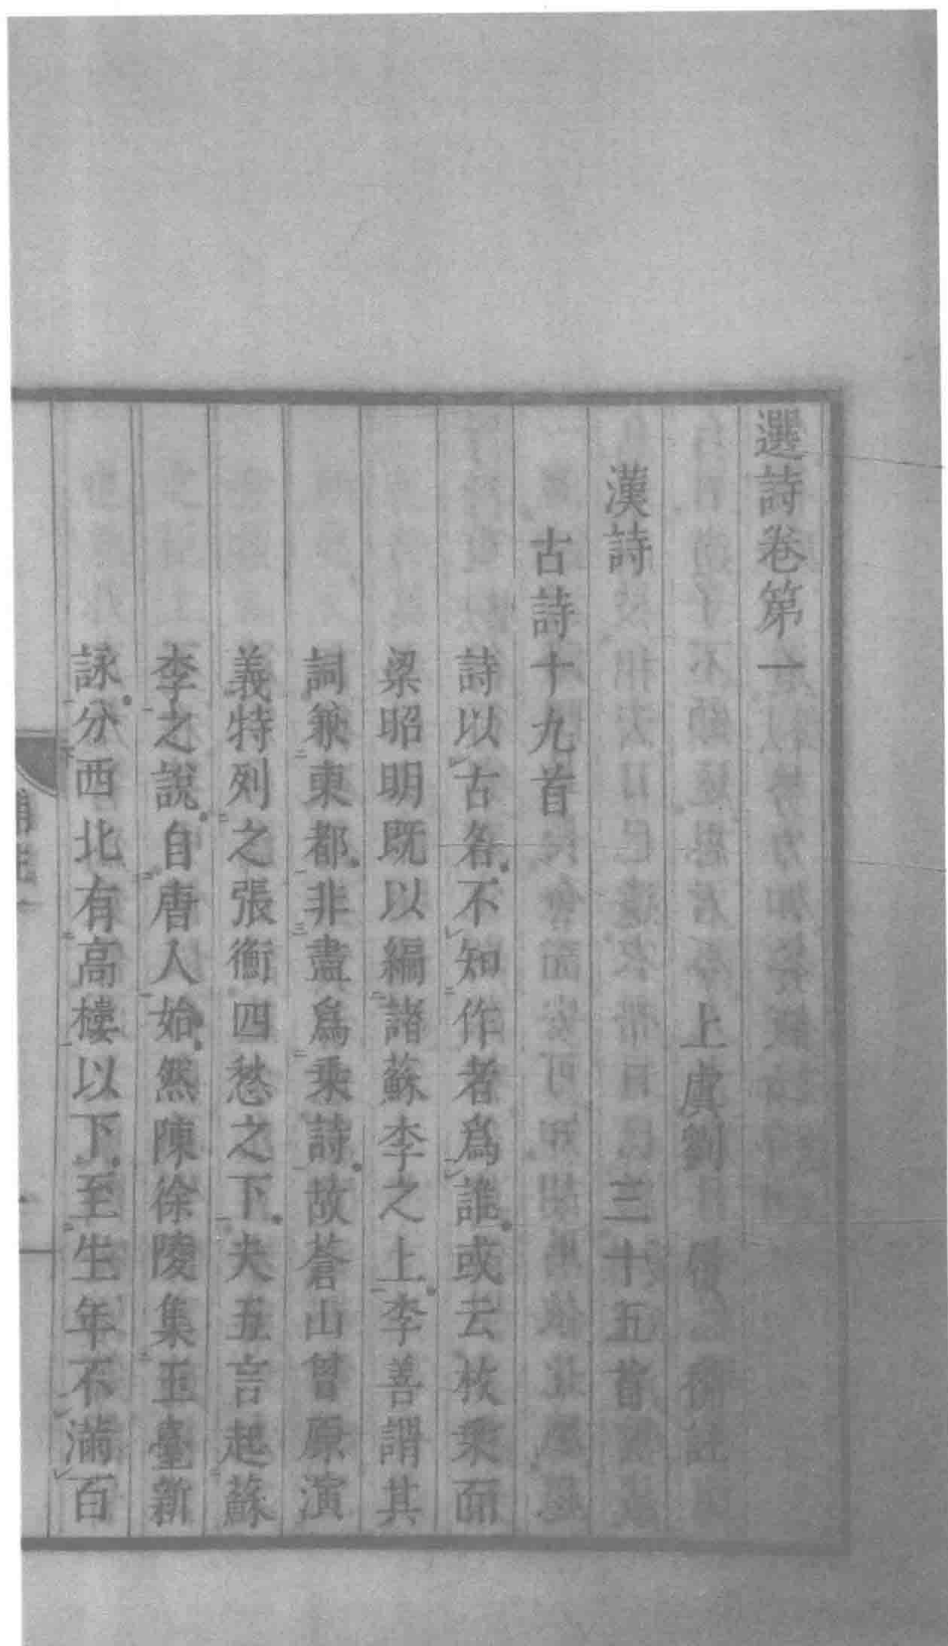 選詩卷第一
上虞劉履補註
漢詩 三十五首
古詩十九首
詩以古名不知作者爲誰或云枚乗而
梁昭明既以編諸蘇李之上李善謂其
詞兼東都非盡爲乗詩故蒼山曾原演
義特列之張衡四愁之下夫五言起蘇
李之說自唐人始然陳徐陵集玉臺新
詠分西北有高樓以下至生年不滿百